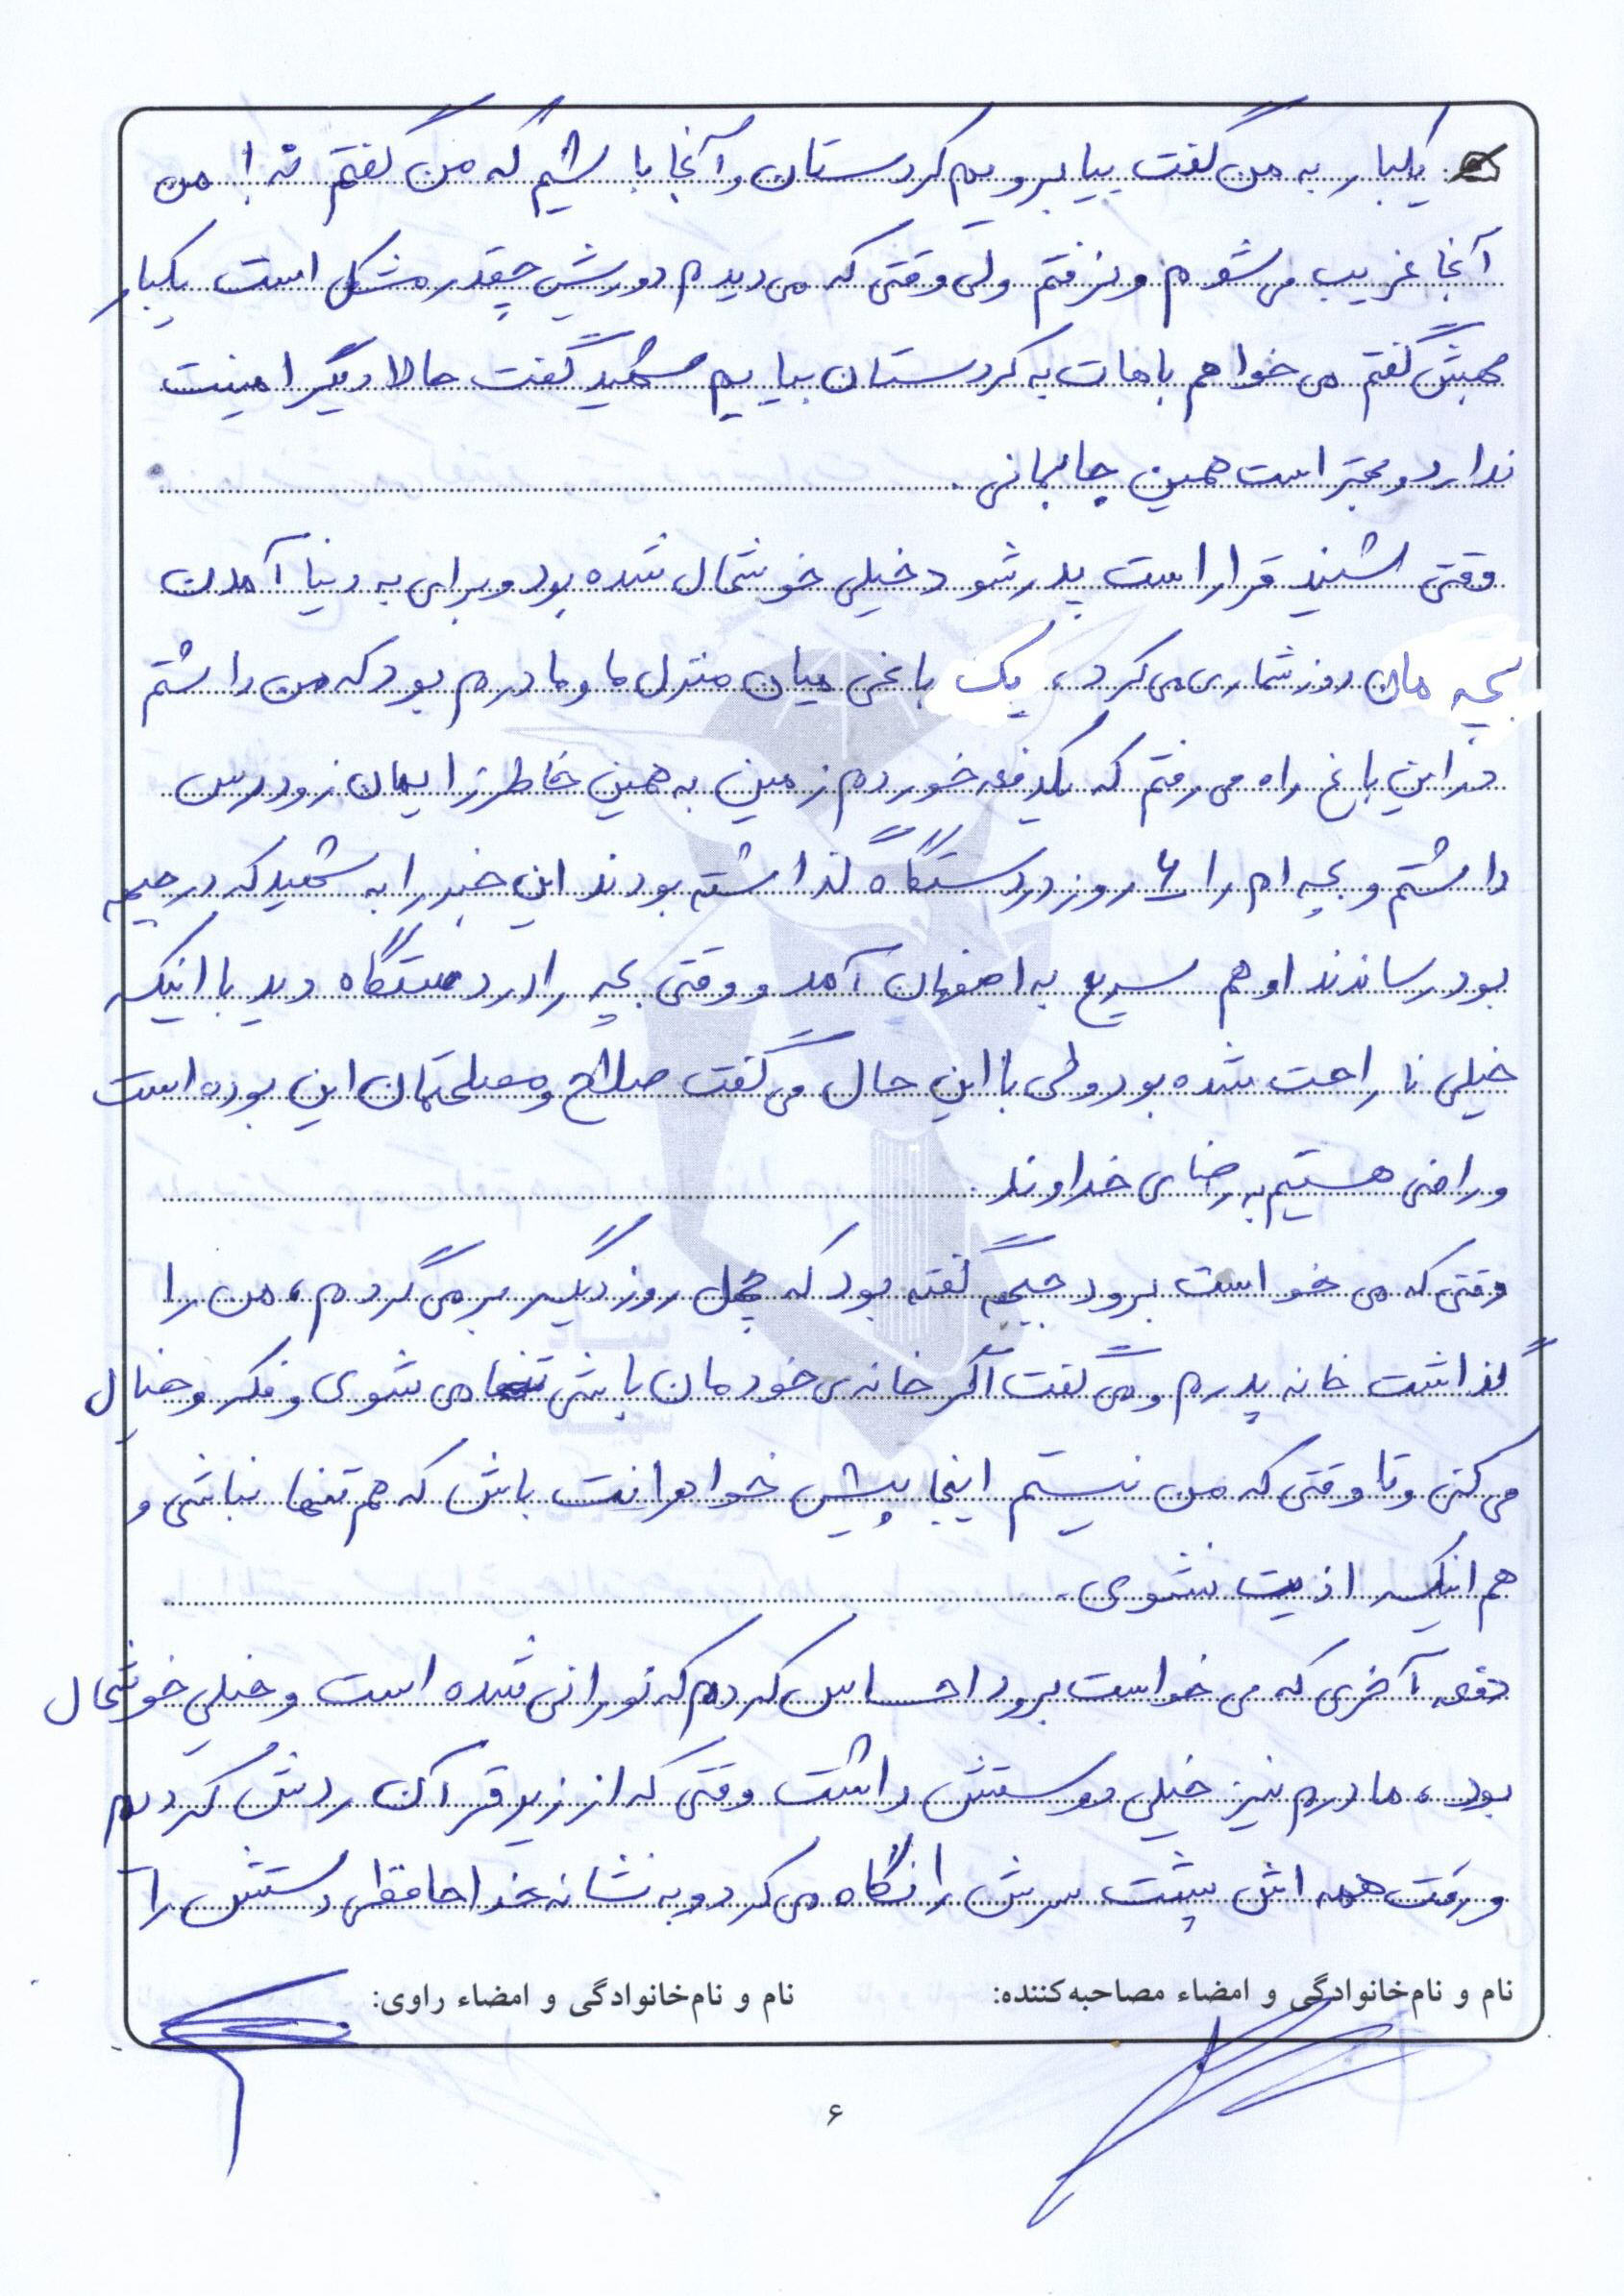 یکبار به من گفت بیا برویم کردستان و آنجا باشیم که من گفتم نه! من
آنجا غریب می شوم و نرفتم ولی وقتی که می دیدم دوریش چقدر مشکل است یکبار
بهش گفتم می خواهم باهات به کردستان بیایم شهید گفت حالا دیگر امینت
ندارد و بهتر است همین جا بمانی.
وقتی شنید قرار است پدر شود خیلی خوشحال شده بود و برای به دنیا آمدن
بچه مان روزشماری می کرد، یک باغی میان منزل ما و مادرم بود که من داشتم
در این باغ راه می رفتم که یکدفعه خوردم زمین به همین خاطر زایمان زودرس
داشتم و بچه ام را ۶ روز در دستگاه گذاشته بودند این خبر را به شهید که در جبهه
بود رساندند او هم سریع به اصفهان آمد و وقتی بچه را در دستگاه دید با اینکه
خیلی ناراحت شده بود ولی با این حال می گفت صلاح و مصلحتمان این بوده است
و راضی هستیم به رضای خداوند.
وقتی که می خواست برود جبهه گفته بود که چهل روز دیگر بر می گردم، من را
گذاشت خانه پدرم و می گفت اگر خانه ی خودمان باشی تنها می شوی و فکر و خیال
می کنی و تا وقتی که من نیستم اینجا پیش خواهرانت باش که هم تنها نباشی و
هم اینکه اذیت نشوی.
دفعه آخری که می خواست برود احساس کردم که نورانی شده است و خیلی خوشحال
بود، مادرم نیز خیلی دوستش داشت وقتی که از زیر قرآن ردش کردیم
و رفت همه اش پشت سرش را نگاه می کرد و به نشانه خداحافظی دستش را
نام و نام‌خانوادگی و امضاء مصاحبه‌کننده: نام و نام‌خانوادگی و امضاء راوی:
۶